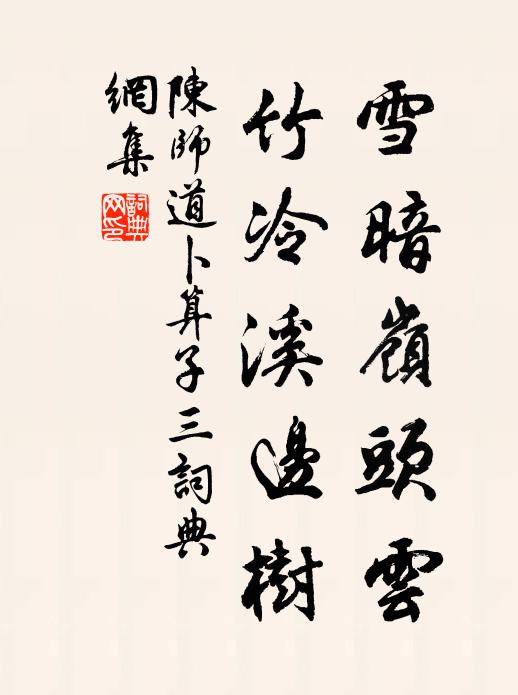 雪暗嶺頭雲
竹冷溪邊樹
陳師道卜算子三詞典
網集
詞典網印